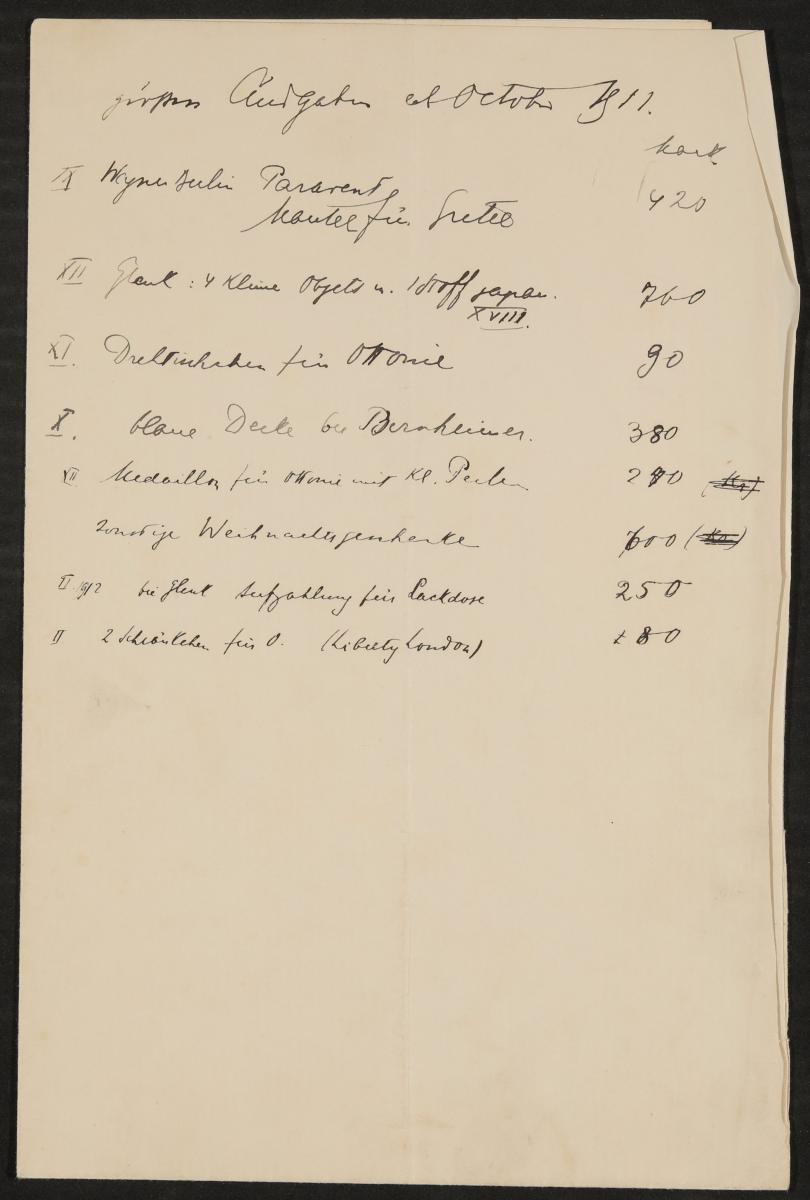 grössere Ausgaben ab October 1911.
Mark.
IX Wagner Berlin Paravent 420
Mantel für Gretel
XII Glenk : 4 kleine Objets u. 1 Stoff japan. 760
XVIII.
XI. für Ottonie 90
X. blaue Decke bei Bernheimer. 380
XII Medaillon für Ottonie mit kl. Perlen 270 (Kr)
sonstige Weihnachtsgeschenke 600 (Kr)
II 1912 bei Glenk Aufzahlung für Lackdose 250
II 2 Schränkchen für O. (Liberty London) 80